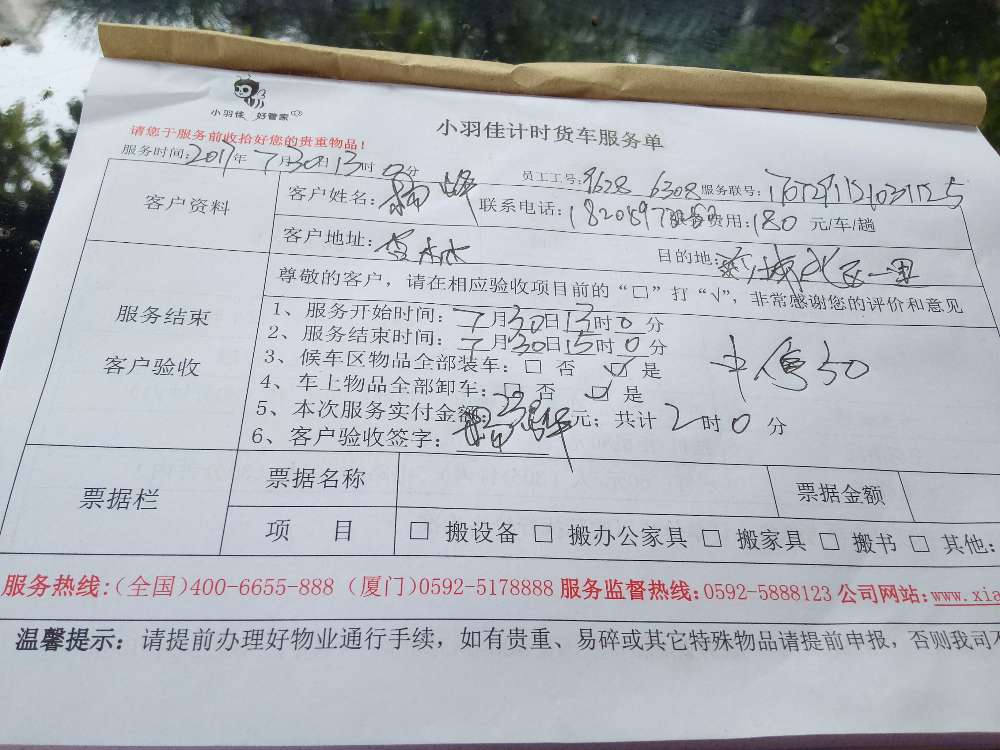 小羽佳 好管家
小羽佳计时货车服务单
请您于服务前收拾好您的贵重物品!
服务时间:2017年7月30日13时0分 员工工号:9628 6308 服务联号:
客户资料 客户姓名: 联系电话: 费用:180 元/车/趟
客户地址: 目的地:
尊敬的客户,请在相应验收项目前的“□”打“√”,非常感谢您的评价和意见
服务结束
客户验收
1、服务开始时间:7月30日13时0分
2、服务结束时间:7月30日15时0分
3、候车区物品全部装车:□ 否 ☑ 是
4、车上物品全部卸车:□ 否 ☑ 是
5、本次服务实付金额: 元;共计 2时0分
6、客户验收签字:
50
票据栏 票据名称 票据金额
项 目 □ 搬设备 □ 搬办公家具 □ 搬家具 □ 搬书 □ 其他:
服务热线:(全国)400-6655-888 (厦门)0592-5178888 服务监督热线:0592-5888123 公司网站:www.xia
温馨提示:请提前办理好物业通行手续,如有贵重、易碎或其它特殊物品请提前申报,否则我司不